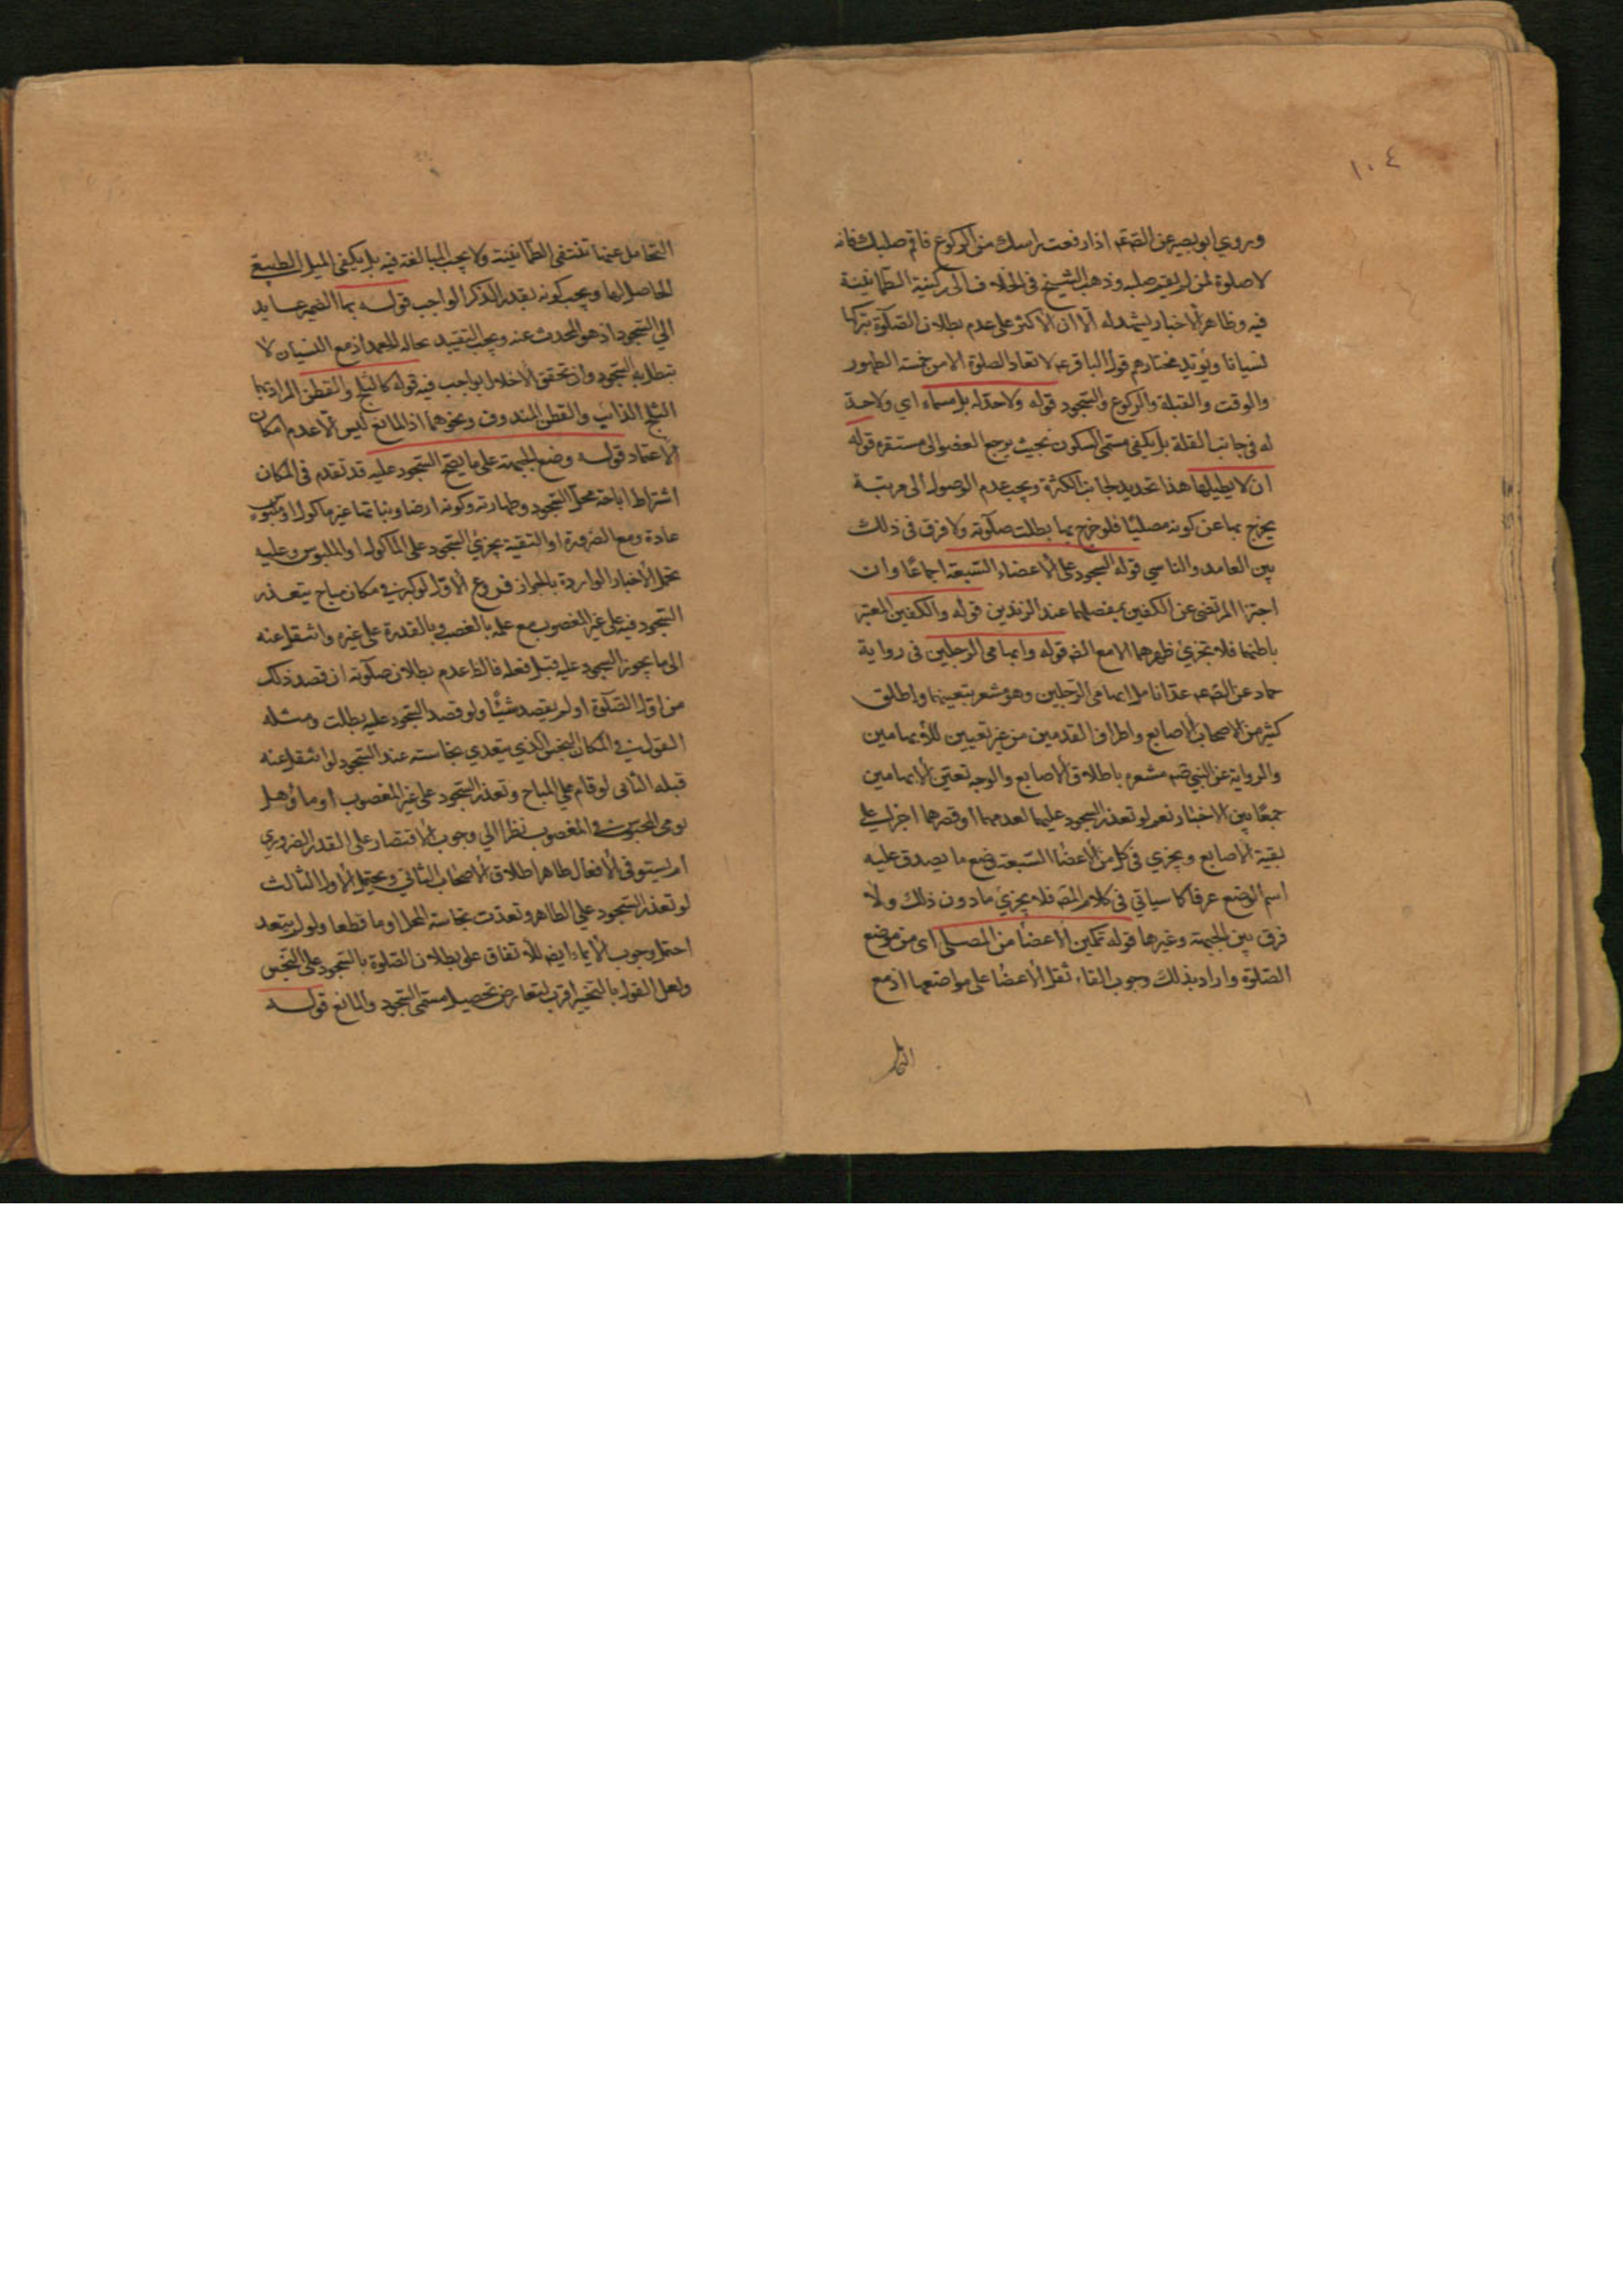 ١٠٤
وروي ابو بصير عن الصم اذا رفعت راسك من الركوع فاقم صلبك فانه
لا صلوة لمن لم يقم صلبه وذهب الشيخ في الخلاف الى ركنية الطمانينة
فيه وظاهر الاخبار يشهد له الا ان الاكثر على عدم بطلان الصلوة بتركها
نسيانا ويؤيد مختارهم قول الباقر عم لا تعاد الصلوة الا من خمسة الطهور
والوقت والقبلة والركوع والسجود قوله ولا حد له بل مسماه اي ولا حد
له في جانب القلة بل يكفي مسمى السكون بحيث يرجع العضو الى مستقره قوله
ان لا يطيلها هذا تحديد لجانب الكثرة ويجب عدم الوصول الى مرتبة
يخرج بها عن كونه مصليا فلو خرج بها بطلت صلوته ولا فرق في ذلك
بين العامد والناسي قوله السجود على الاعضاء السبعة اجماعا وان
اجتزا المرتضى عن الكفين بمفصلهما عند الزندين قوله والكفين المعتبر
باطنهما فلا تجزئ ظهرهما الا مع الضـ قوله وابهامي الرجلين في رواية
حماد عن الصم عم عد انامل ابهامي الرجلين وهو مشعر بتعيينهما واطلق
كثير من الاصحاب الاصابع واطراف القدمين من غير تعيين للابهامين
والرواية عن النبي صم مشعره باطلاق الاصابع والوجه تعين الابهامين
جمعا بين الاخبار نعم لو تعذر السجود عليهما لعدمهما او قصرهما اجزا على
بقية الاصابع ويجزي في كل من الاعضا السبعة وضع ما يصدق عليه
اسم الوضع عرفا كما سياتي في كلام المصـ فلا يجزي ما دون ذلك ولا
فرق بين الجبهة وغيرها قوله تمكين الاعضا من المصلى اي من موضع
الصلوة واراد بذلك وجوب القاء ثقل الاعضا على مواضعها اذ مع
التحامل عنها تنتفى الطمانينة ولا يجب المبالغة فيه بل يكفي الميل الطبيعي
الحاصل لها ويجب كونه بقدر الذكر الواجب قوله بما الضمير عايد
الي السجود اذ هو المحدث عنه ويجب التقييد بحاله العمد اذ مع النسيان لا
تبطل به السجود وان تحقق الاخلال بواجب فيه قوله كالثلج والقطن المراد بها
الثلج الذايب والقطن المندوف ونحوهما اذ المانع ليس الا عدم امكان
الاعتماد قوله وضع الجبهة على ما يصح السجود عليه قد تقدم في المكان
اشتراط اباحة محل السجود وطهارته وكونه ارضا ونباتها غير ماكول او ملبوس
عادة ومع الضرورة او التقية يجزئ السجود على الماكول والملبوس وعليه
تحمل الاخبار الواردة بالجواز فروع الاول لو كبر في مكان مباح يتعذر
السجود فيه على غير المغصوب مع علمه بالغصب وبالقدرة على غيره وانتقل عنه
الى ما يجوز السجود عليه قبل فعله فالظ عدم بطلان صلوته ان قصد ذلك
من اول الصلوة او لم يقصد شيئا ولو قصد السجود عليه بطلت ومثله
القول في المكان النجس الذي يتعدي نجاسته عند السجود لو انتقل عنه
قبله الثاني لو قام على المباح وتعذر السجود على غير المغصوب اوما وهل
يومي المحبوس في المغصوب نظرا الي وجوب الاقتصار على القدر الضروري
ام يستوفي الافعال ظاهر اطلاق الاصحاب الثاني ويحتمل الاول الثالث
لو تعذر السجود على الطاهر وتعدت نجاسة المحل اوما قطعا ولو لم يتعد
احتمل وجوب الايماء ايضـ للاتفاق على بطلان الصلوة بالسجود على النجس
ولعل القول بالتخيير اقرب لتعارض تحصيل مسمى السجود والمانع قوله